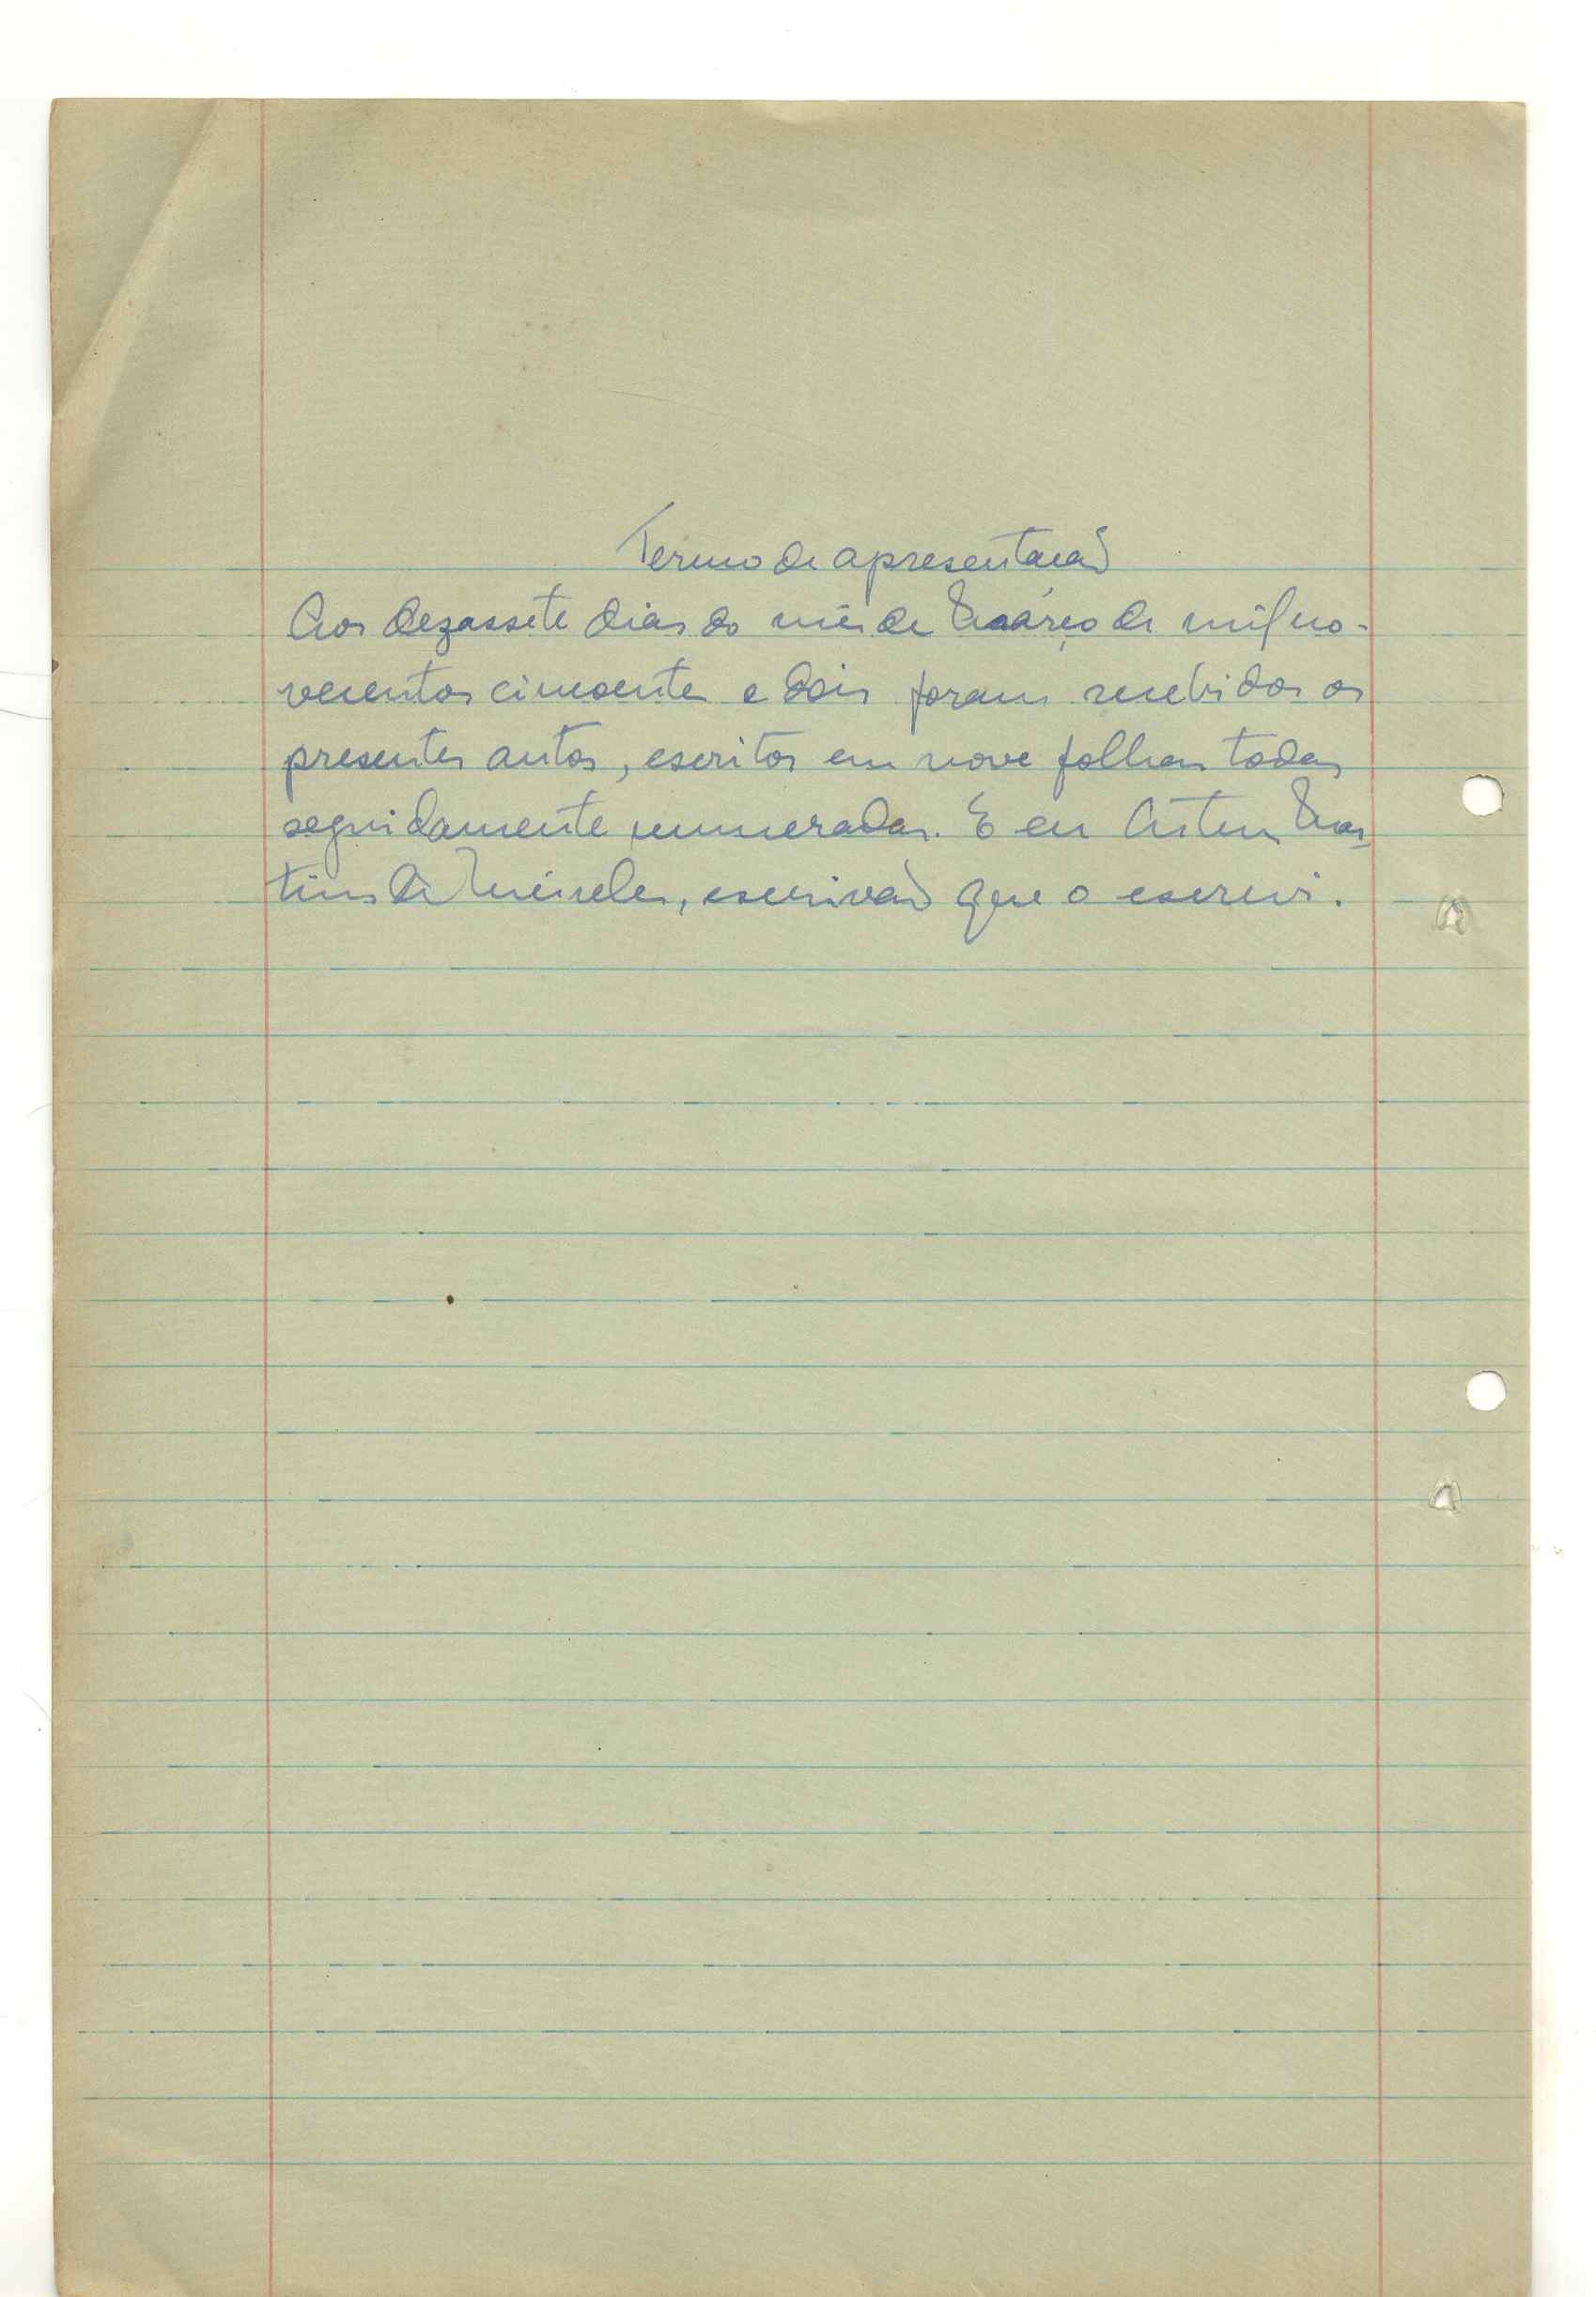 Termo de apresentação
Aos dezassete dias do mês de Março de mil no-
vecentos cincoenta e dois foram recebidos os
presentes autos, escritos em nove folhas todas
seguidamente numeradas. E eu Mar
tins de Meireles, escrivão que o escrevi.